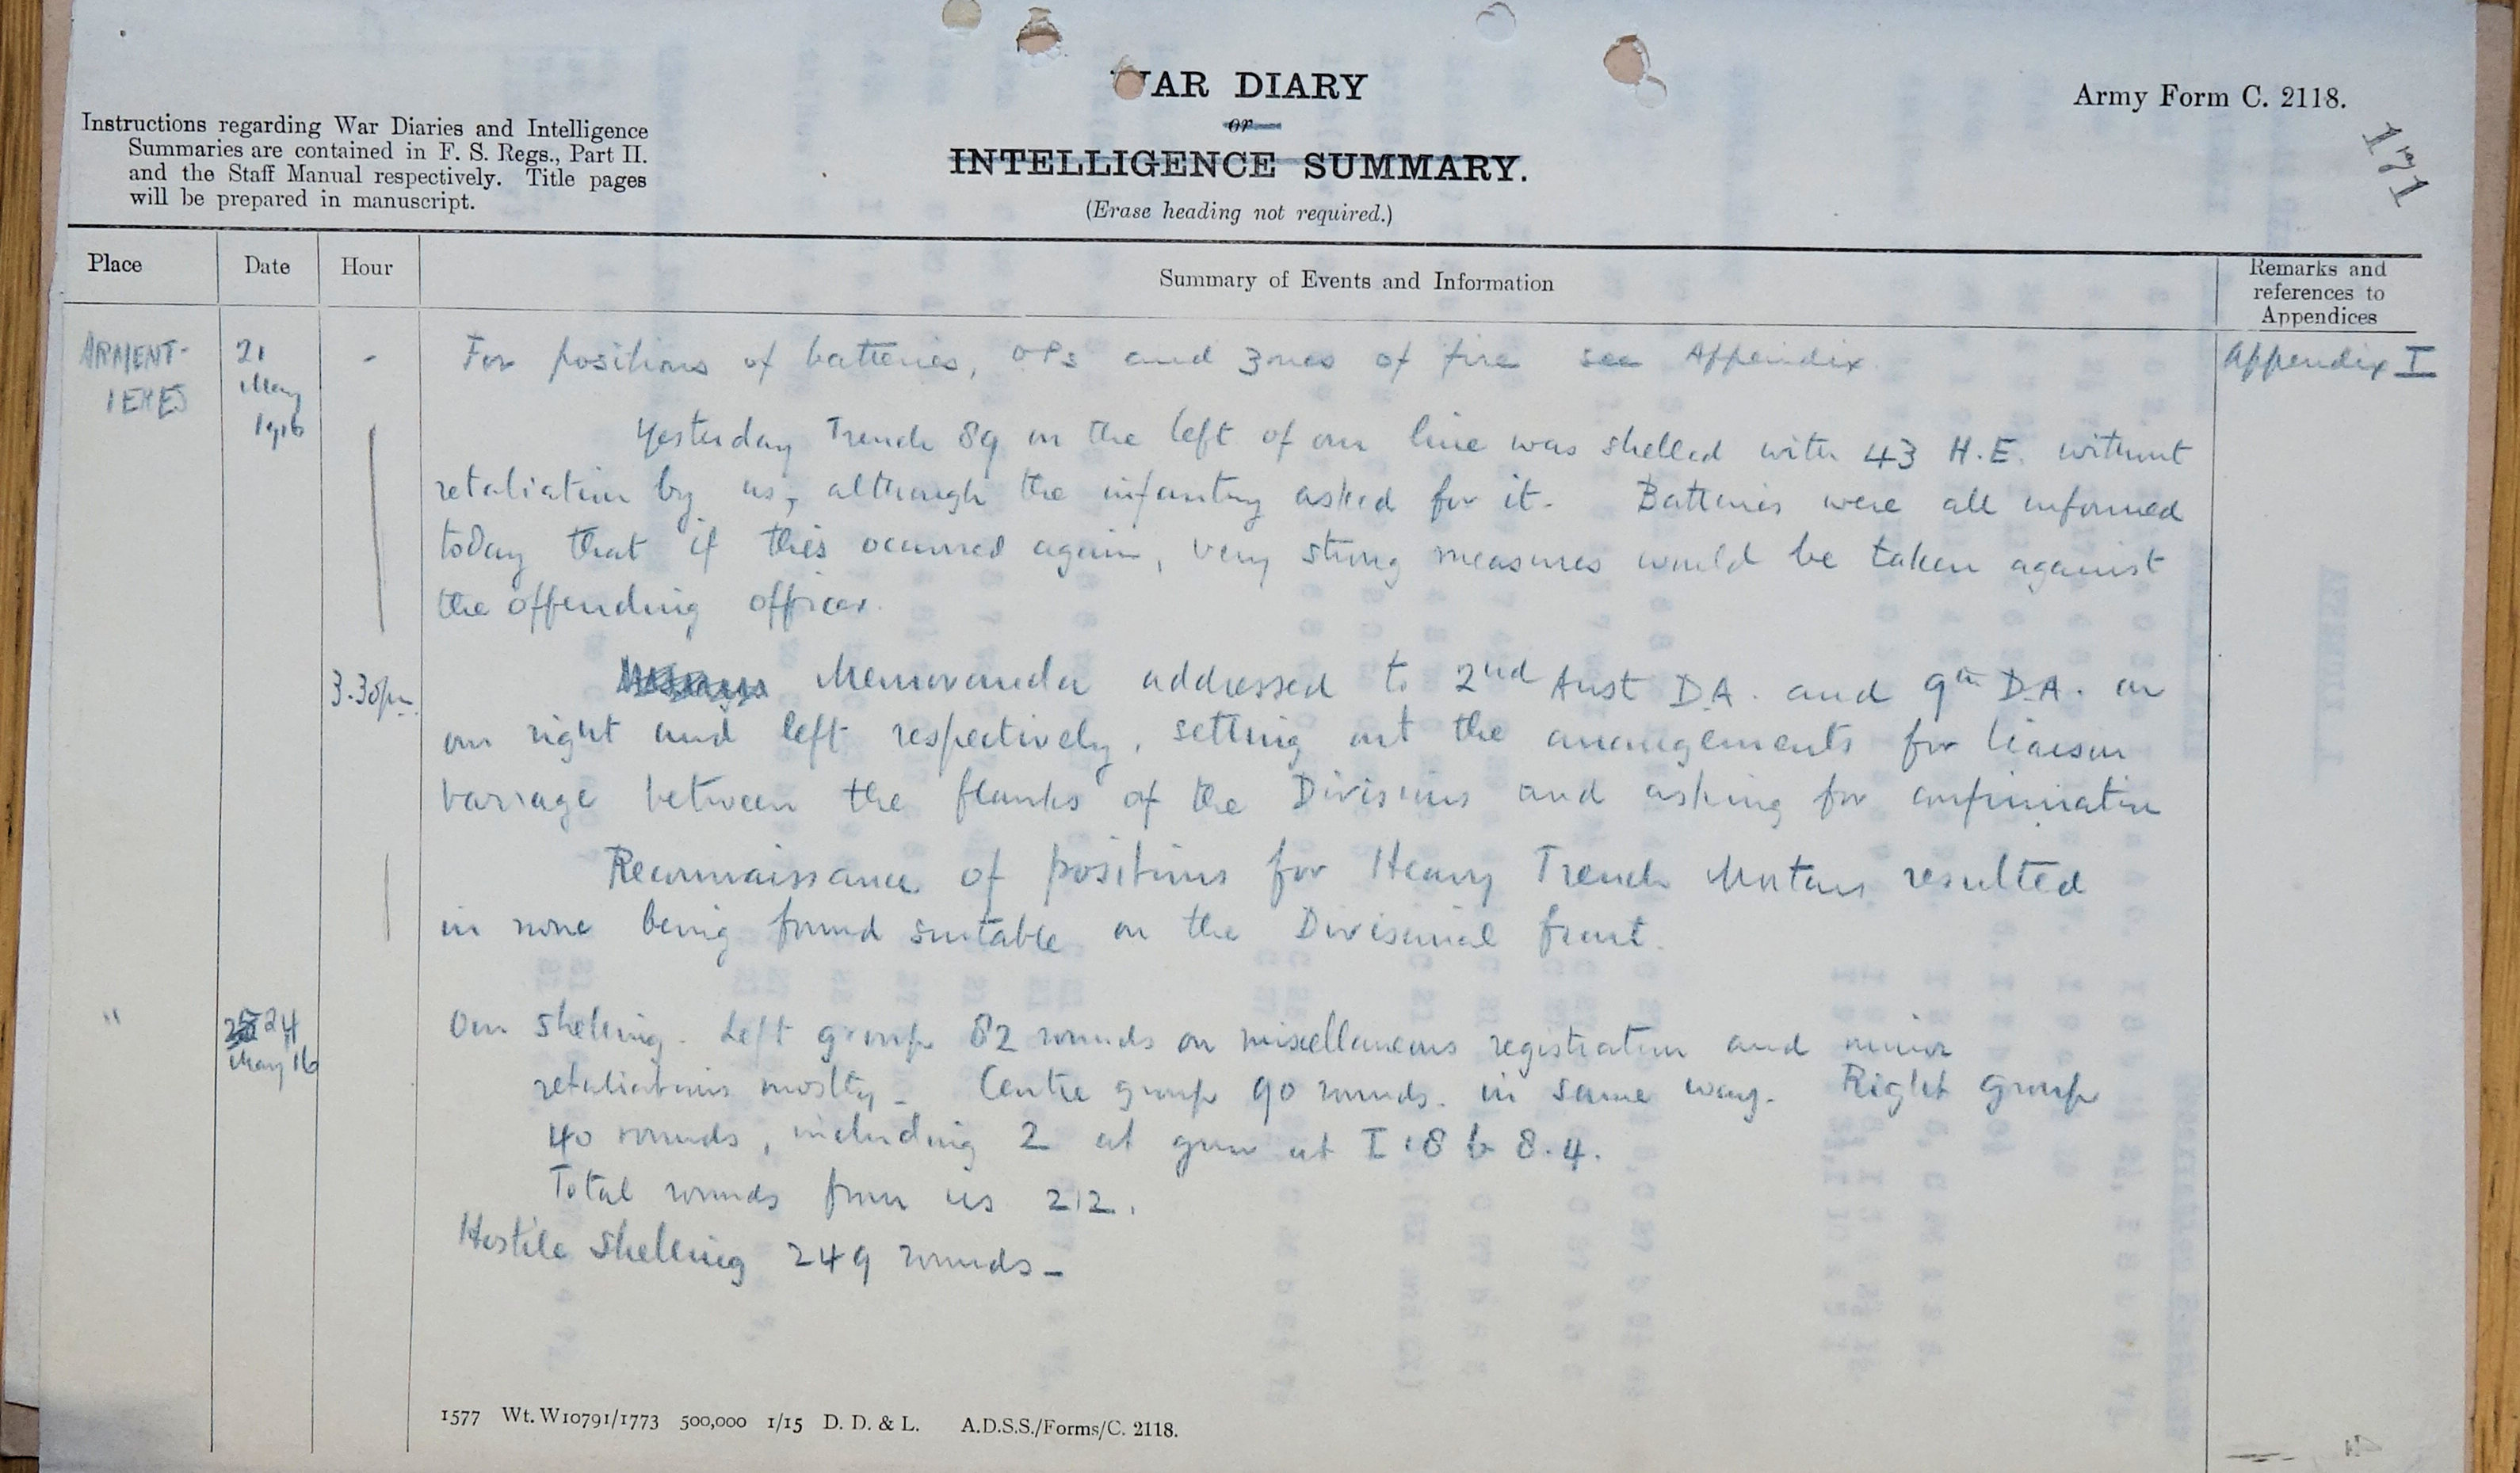 WAR DIARY
or
INTELLIGENCE SUMMARY.
(Erase heading not required.)
Army Form C. 2118.
171
Instructions regarding War Diaries and Intelligence
Summaries are contained in F. S. Regs., Part II.
and the Staff Manual respectively. Title pages
will be prepared in manuscript.
Place Date Hour Summary of Events and Information Remarks and references to Appendices
ARMENT- 21 - For positions of batteries, OPs and zones of fire see Appendix. Appendix I
IERES May
1916
Yesterday Trench 89 on the left of our line was shelled with 43 H.E. without
retaliation by us, although the infantry asked for it. Batteries were all informed
today that if this occurred again, very strong measures would be taken against
the offending officer.
3.30pm Memoranda addressed to 2nd Aust D.A. and 9th D.A. on
our right and left respectively, setting out the arrangements for liaison
barrage between the flanks of the Divisions and asking for confirmation
Reconnaissance of positions for Heavy Trench Mortars resulted
in none being found suitable on the Divisional front.
" 24 Our shelling. Left group 82 rounds on miscellaneous registration and minor
May 16 retaliations mostly - Centre group 90 rounds. in same way. Right group
40 rounds, including 2 at gun at I 18 b 8.4.
Total rounds from us 212.
Hostile shelling 249 rounds -
1577 Wt. W10791/1773 500,000 1/15 D. D. & L. A.D.S.S./Forms/C. 2118.